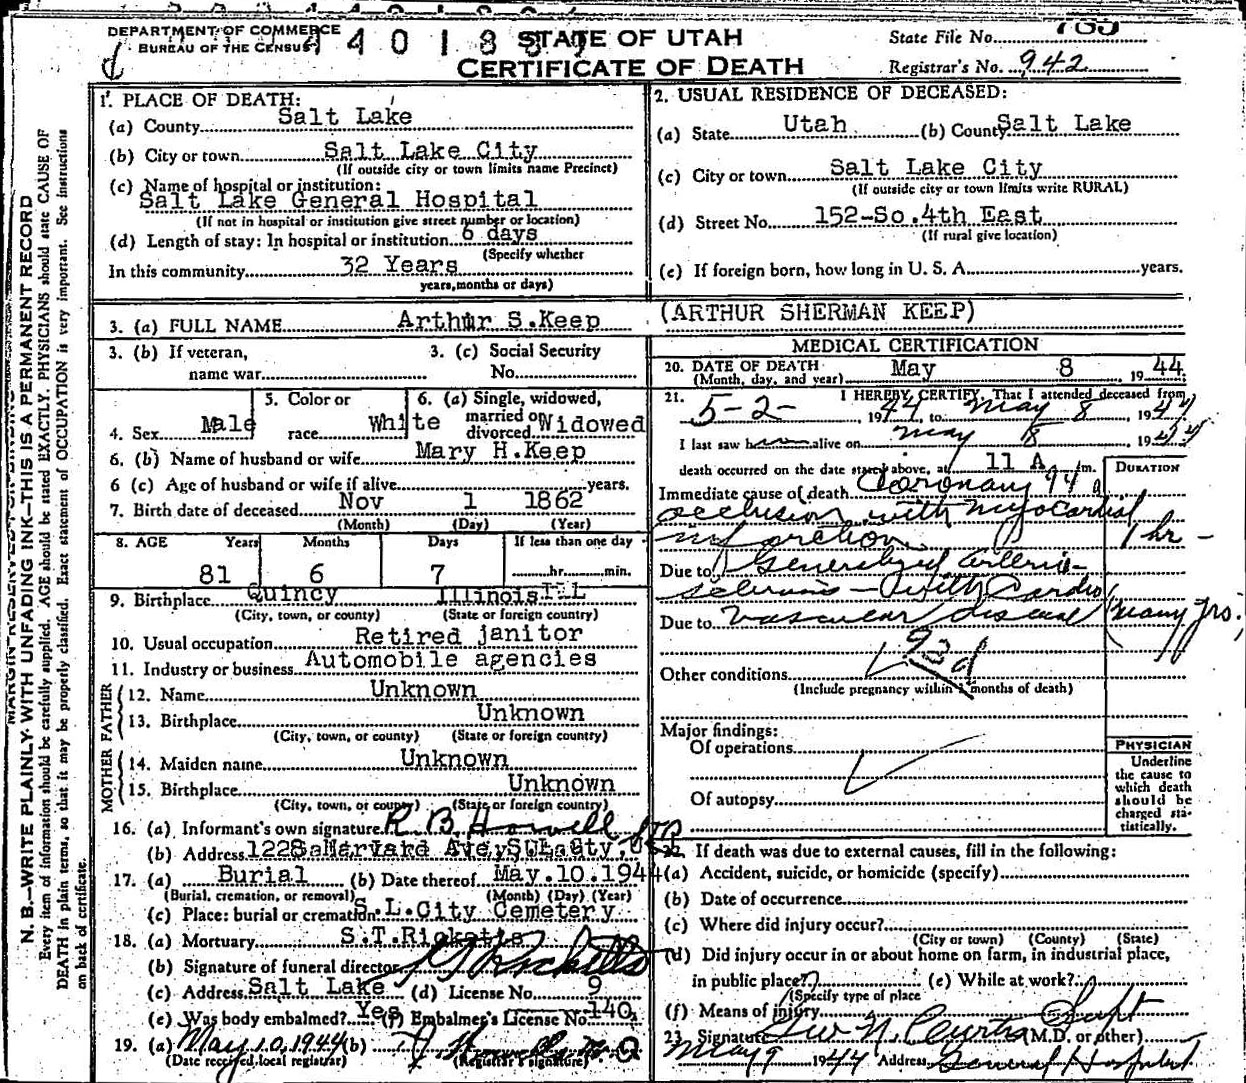 DEPARTMENT OF COMMERCE
BUREAU OF THE CENSUS
STATE OF UTAH
CERTIFICATE OF DEATH
State File No.
Registrar's No. 942
1. PLACE OF DEATH:
(a) County Salt Lake
(b) City or town Salt Lake City
(If outside city or town limits name Precinct)
(c) Name of hospital or institution:
Salt Lake General Hospital
(If not in hospital or institution give street number or location)
(d) Length of stay: In hospital or institution 6 days
(Specify whether
In this community 32 Years
years, months or days)
2. USUAL RESIDENCE OF DECEASED:
(a) State Utah (b) County Salt Lake
(c) City or town Salt Lake City
(If outside city or town limits write RURAL)
(d) Street No. 152-So.4th East
(If rural give location)
(e) If foreign born, how long in U. S. A. years.
3. (a) FULL NAME Arthur S.Keep
(ARTHUR SHERMAN KEEP)
3. (b) If veteran,
name war
3. (c) Social Security
No.
4. Sex Male
5. Color or
race White
6. (a) Single, widowed,
married or
divorced Widowed
6. (b) Name of husband or wife Mary H.Keep
6 (c) Age of husband or wife if alive years.
7. Birth date of deceased Nov 1 1862
(Month) (Day) (Year)
8. AGE Years Months Days If less than one day
81 6 7 hr. min.
9. Birthplace Quincy Illinois
(City, town, or county) (State or foreign country)
10. Usual occupation Retired janitor
11. Industry or business Automobile agencies
FATHER
12. Name Unknown
13. Birthplace Unknown
(City, town, or county) (State or foreign country)
MOTHER
14. Maiden name Unknown
15. Birthplace Unknown
(City, town, or county) (State or foreign country)
16. (a) Informant's own signature R. B. Howell
(b) Address Harvard Ave
17. (a) Burial (b) Date thereof May.10.1944
(Burial, cremation, or removal) (Month) (Day) (Year)
(c) Place: burial or cremation S.L.City Cemetery
18. (a) Mortuary S.T.Ricketts
(b) Signature of funeral director Ricketts
(c) Address Salt Lake (d) License No. 9
(e) Was body embalmed? Yes (f) Embalmer's License No. 140
19. (a) May 10, 1944 (b)
(Date received local registrar) (Registrar's signature)
MEDICAL CERTIFICATION
20. DATE OF DEATH May 8 1944
(Month, day, and year)
21. I HEREBY CERTIFY, That I attended deceased from
5-2- 1944 to May 8, 1944
I last saw him alive on May 8 1944
death occurred on the date stated above, at 11 A m.
DURATION
Immediate cause of death Coronary 94a
occlusion with myocardial
infarction 1 hr-
Due to Generalized arterio-
sclerosis - with Cardio
Due to vascular disease (many yrs.)
93d
Other conditions
(Include pregnancy within 3 months of death)
Major findings:
Of operations
Of autopsy
PHYSICIAN
Underline
the cause to
which death
should be
charged sta-
tistically.
22. If death was due to external causes, fill in the following:
(a) Accident, suicide, or homicide (specify)
(b) Date of occurrence
(c) Where did injury occur?
(City or town) (County) (State)
(d) Did injury occur in or about home on farm, in industrial place,
in public place? (e) While at work?
(Specify type of place
(f) Means of injury
23. Signature Geo. N. Curtis Supt (M.D. or other)
May 9 1944 Address General Hospital
MARGIN RESERVED FOR BINDING
N. B.—WRITE PLAINLY WITH UNFADING INK—THIS IS A PERMANENT RECORD
Every item of information should be carefully supplied. AGE should be stated EXACTLY. PHYSICIANS should state CAUSE OF
DEATH in plain terms, so that it may be properly classified. Exact statement of OCCUPATION is very important. See instructions
on back of certificate.